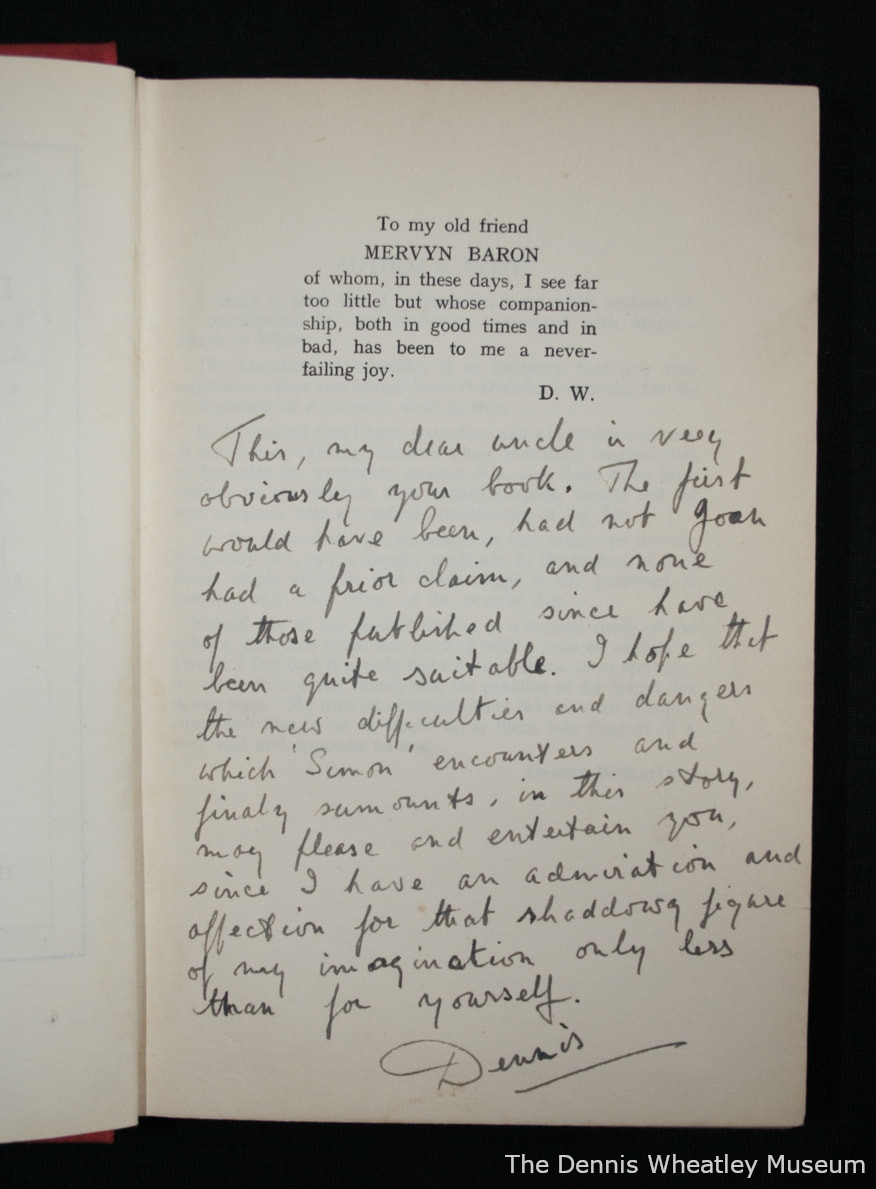 To my old friend
MERVYN BARON
of whom, in these days, I see far
too little but whose companion-
ship, both in good times and in
bad, has been to me a never-
failing joy.
D. W.
This, my dear uncle is very
obviously your book. The first
would have been, had not Joan
had a prior claim, and none
of those published since have
been quite suitable. I hope that
the new difficulties and dangers
which 'Simon' encounters and
finaly surmounts, in this story,
may please and entertain you,
since I have an admiration and
affection for that shaddowy figure
of my imagination only less
than for yourself.
Dennis
The Dennis Wheatley Museum